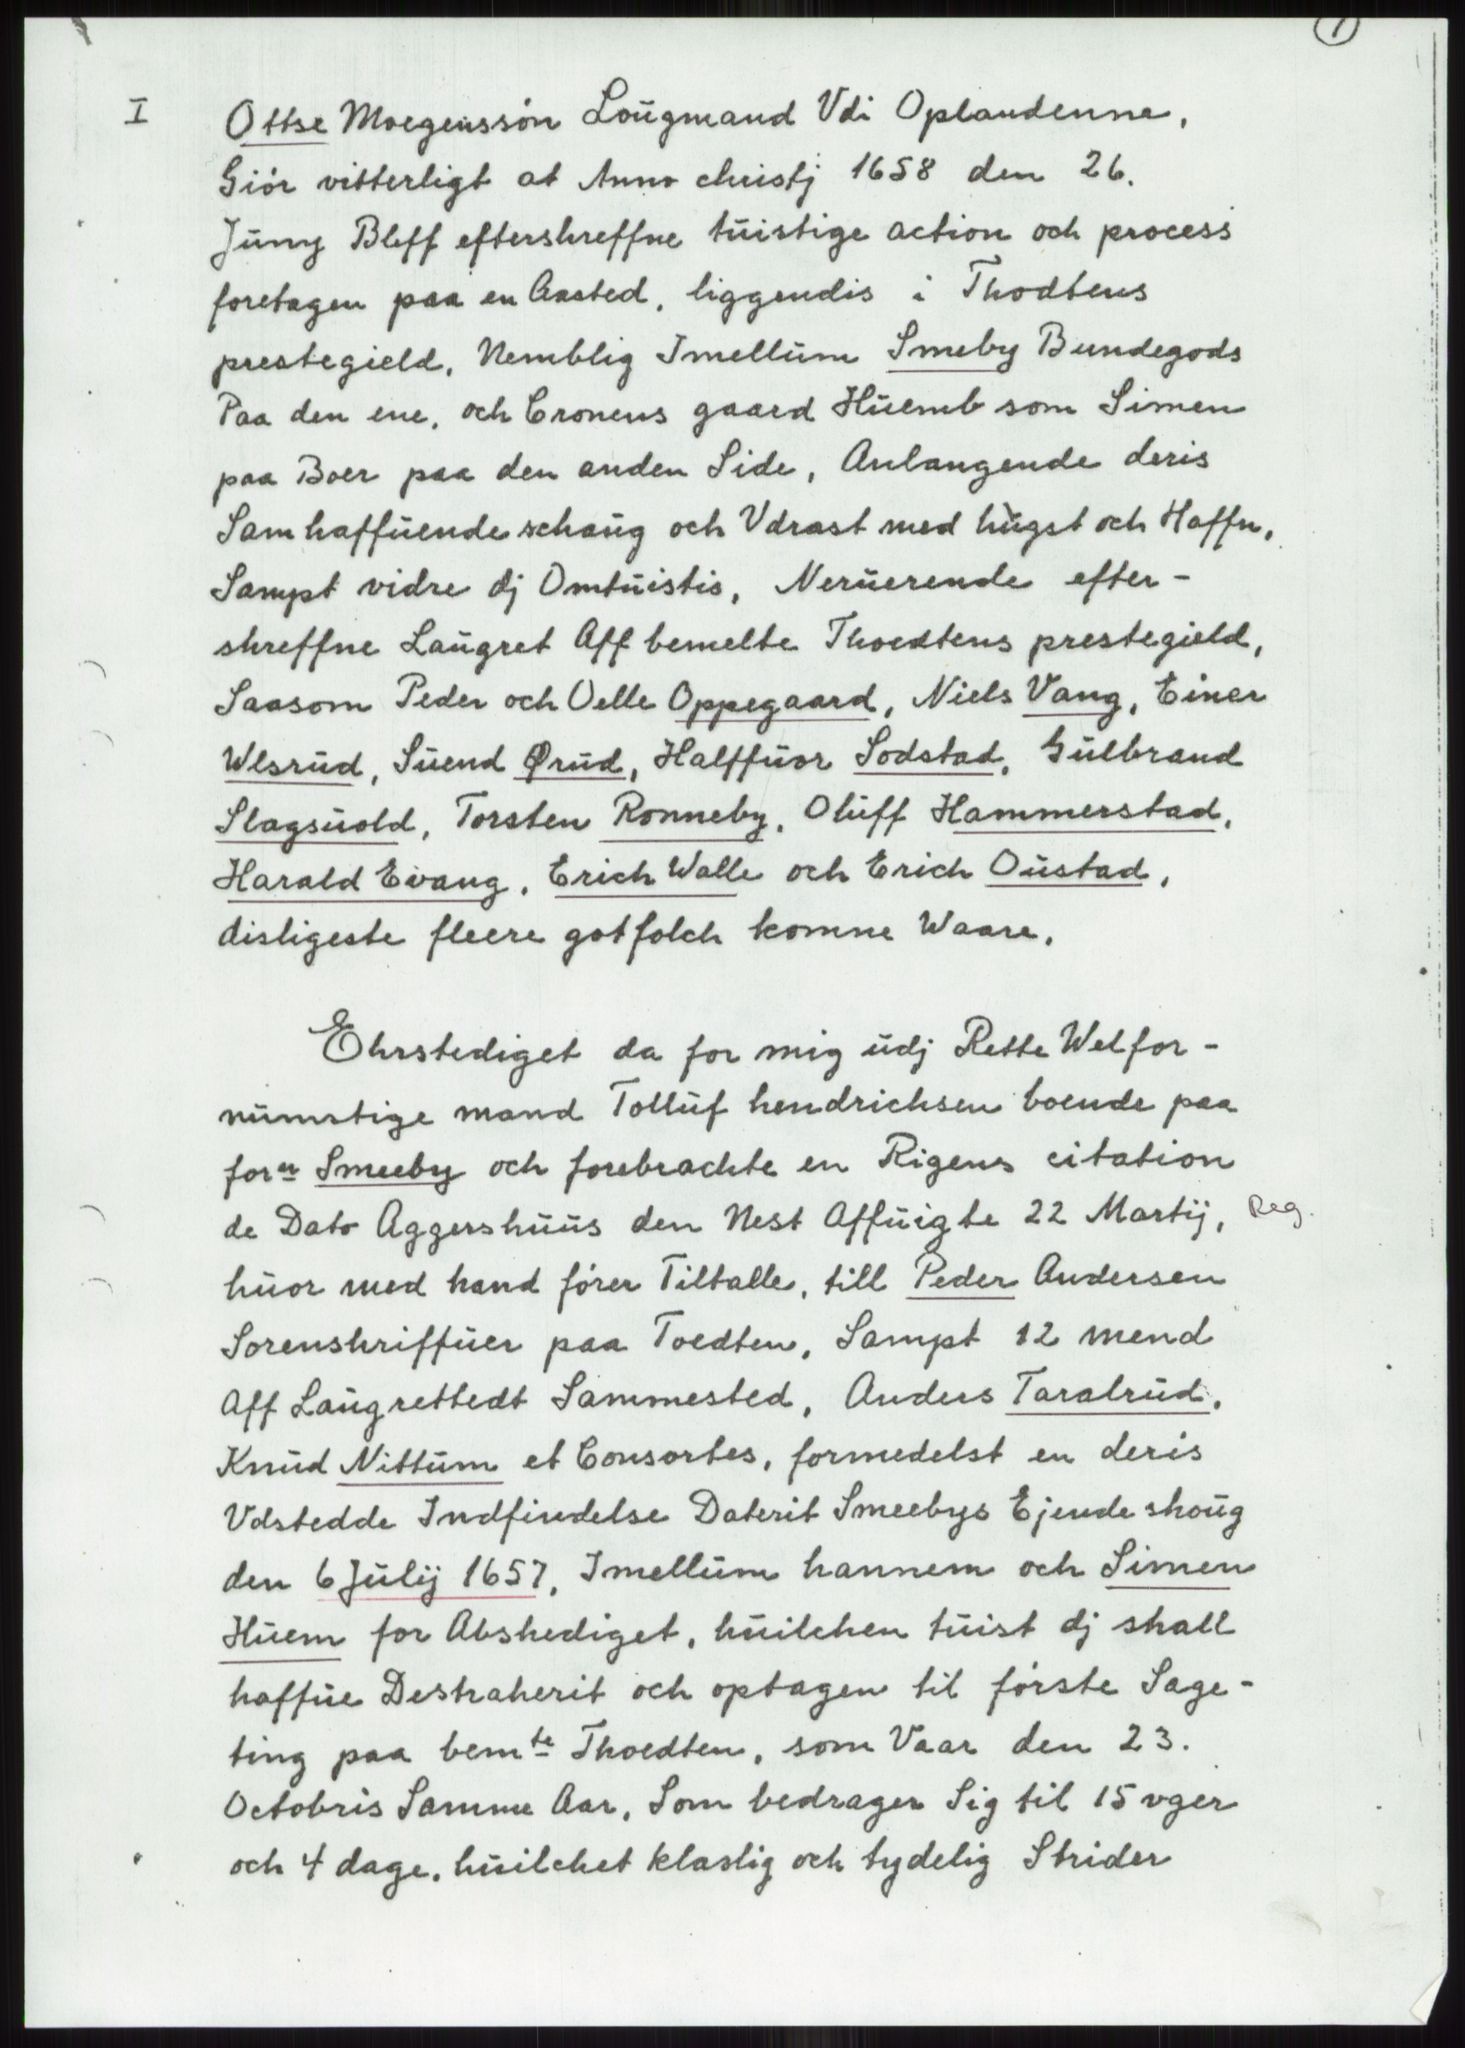 1
I
Ottse Moegenssón Lougmand Vdi Oplandenne,
Giór vitterligt at Anno christj 1658 den 26.
Juny Bleff eftershreffne tüistige action och process
foretagen paa en Aasted, liggendis i Thodtens
prestegield, Nemblig Imellüm Smeby Bundegods
Paa den ene, och Cronens gaard Hüemb som Simen
paa Boer paa den anden Side, Anlangende deris
Samhaffüende schoüg och Vdrast med hügst och Haffn,
Sampt vidre dj Omtüistis, Nerüerende efter-
shreffne Laügret Aff bemelte Thoedtens prestegield,
Saasom Peder och Oelle Oppegaard, Niels Vang, Einer
Wlsrüd, Süend Ørüd, Halffüor Sodstad, Gülbrand
Slagsüold, Torsten Ronneby, Olüff Hammerstad,
Harald Evang, Erich Walle och Erich Oüstad,
disligeste fleere gotfolch komne Waare.
Ehrstediget da for mig üdj Rette Welfor-
nümstige mand Tollüf hendrichsen boende paa
forn Smeeby och forebrachte en Rigens citation
de Dato Aggershüüs den Nest Affüigte 22 Martij, Reg.
hüor med hand fórer Tiltalle, till Peder Andersen
Sorenshriffüer paa Toedten, Sampt 12 mend
Aff Laügrettedt Sammested, Anders Taralrüd,
Knüd Nittüm et Consortes, formedelst en deris
Vdstedde Indfindelse Daterit Smeebys Ejende shoüg
den 6 Jülij 1657, Imellüm hannem och Simen
Hüem for Abshediget, hüilchen tüist dj shall
haffüe Destraherit och optagen til fórste Sage-
ting paa bemte Thoedten, som Vaar den 23.
Octobris Samme Aar, Som bedrager Sig til 15 vger
och 4 dage, hüilchet klarlig och tydelig Strider